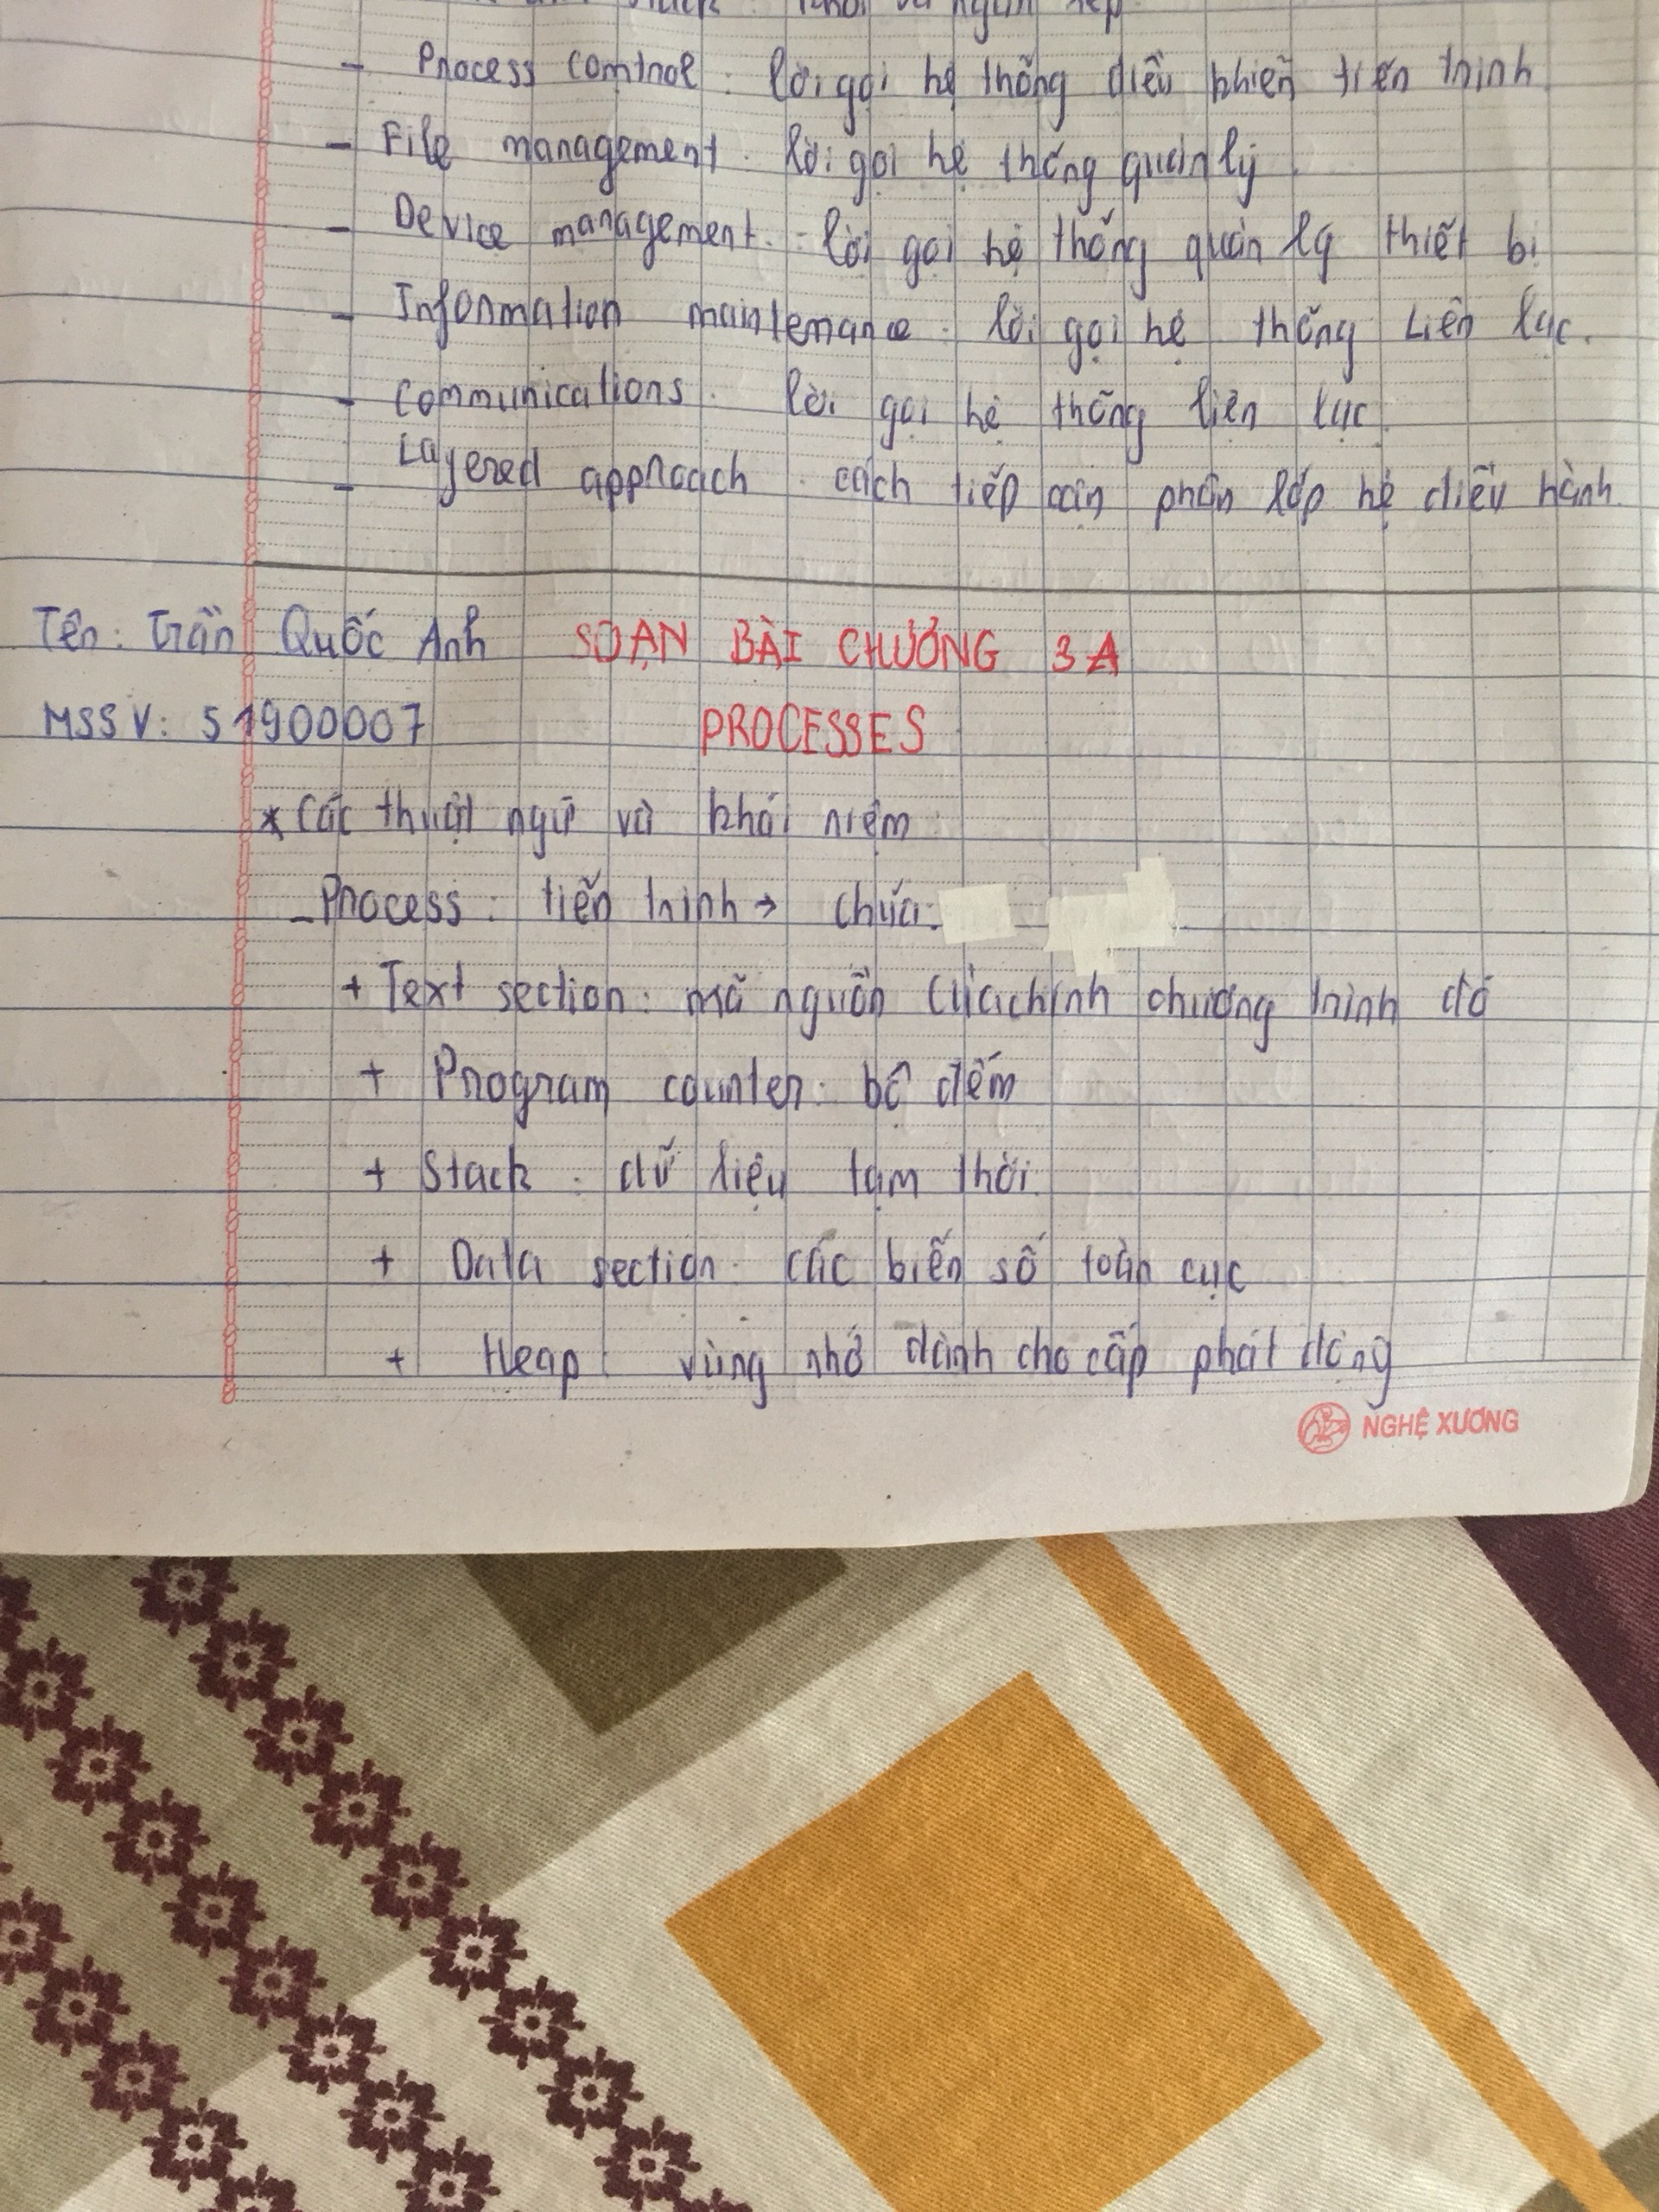 khối và ngăn xếp
- Process control : lời gọi hệ thống điều khiển tiến trình
- File management : lời gọi hệ thống quản lý
- Device management : lời gọi hệ thống quản lý thiết bị
- Information maintenance : lời gọi hệ thống Liên lạc.
- Communications : lời gọi hệ thống liên lạc
- Layered approach : cách tiếp cận phân lớp hệ điều hành
Tên: Trần Quốc Anh SOẠN BÀI CHƯƠNG 3A
MSSV: 51900007 PROCESSES
* Các thuật ngữ và khái niệm
- Process : tiến trình → chứa:
+ Text section : mã nguồn của chính chương trình đó
+ Program counter : bộ đếm
+ Stack : dữ liệu tạm thời
+ Data section : các biến số toàn cục
+ Heap : vùng nhớ dành cho cấp phát động
NGHỆ XƯƠNG